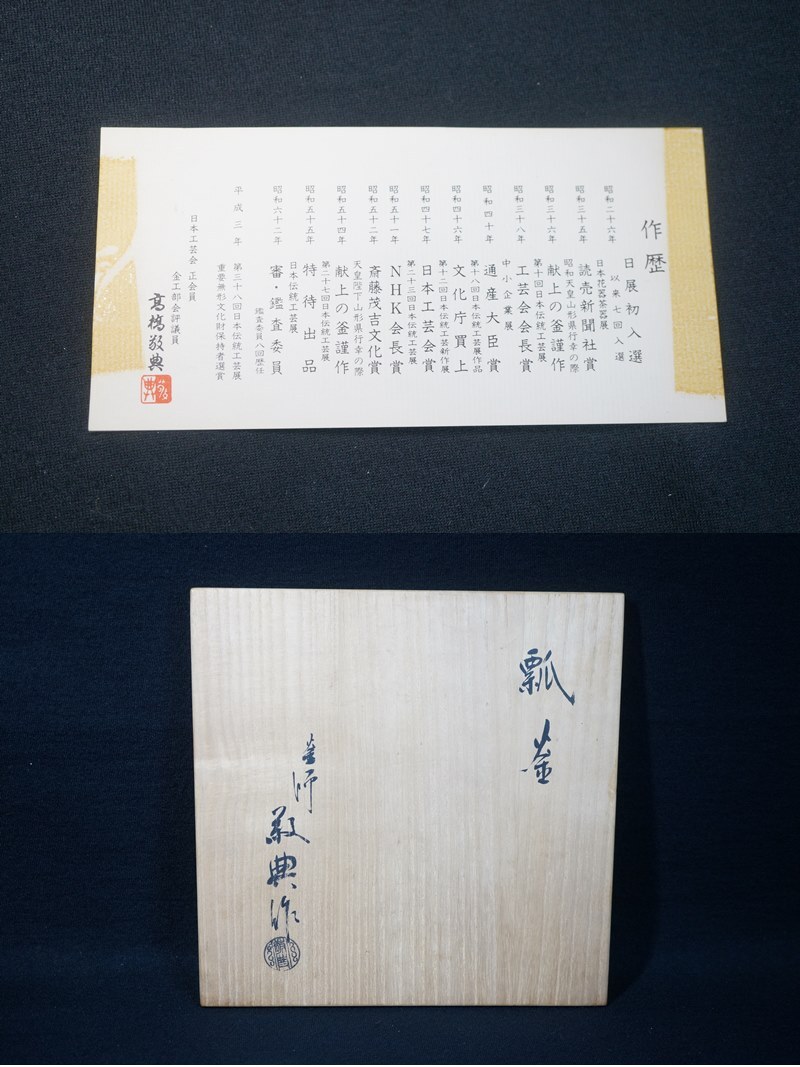 作歴
昭和二十六年 日展初入選
以来七回入選
日本花器茶器展
昭和三十五年 読売新聞社賞
昭和天皇山形県行幸の際
昭和三十六年 献上の釜謹作
第十回日本伝統工芸展
昭和三十八年 工芸会会長賞
中小企業展
昭和四十年 通産大臣賞
第十八回日本伝統工芸展作品
昭和四十六年 文化庁買上
第十二回日本伝統工芸新作展
昭和四十七年 日本工芸会賞
第二十三回日本伝統工芸展
昭和五十一年 NHK会長賞
昭和五十二年 斎藤茂吉文化賞
天皇陛下山形県行幸の際
昭和五十四年 献上の釜謹作
第二十七回日本伝統工芸展
昭和五十五年 特待出品
日本伝統工芸展
昭和六十二年 審・鑑査委員
鑑査委員八回歴任
平成三年 第三十八回日本伝統工芸展
重要無形文化財保持者選賞
日本工芸会正会員
金工部会評議員
高橋敬典
瓢釜
釜師
敬典作